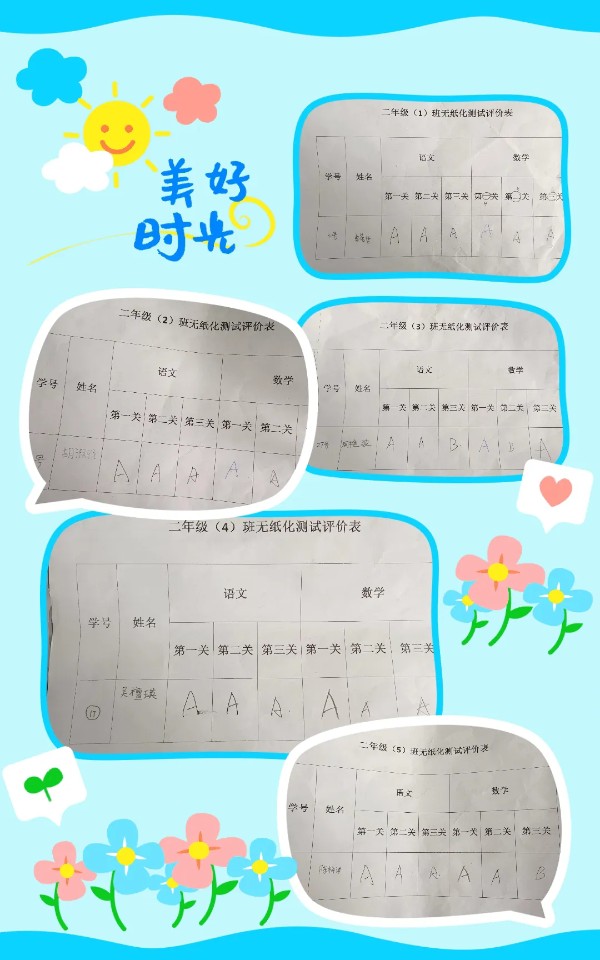 美好
时光
二年级（1）班无纸化测试评价表
学号 姓名 语文 数学
第一关 第二关 第三关 第一关 第二关 第三关
A A A A A A
二年级（2）班无纸化测试评价表
学号 姓名 语文 数学
第一关 第二关 第三关 第一关 第二关
号 A A A A A
二年级（3）班无纸化测试评价表
学号 姓名 语文 数学
第一关 第二关 第三关 第一关 第二关 第三关
A A B A B A
二年级（4）班无纸化测试评价表
学号 姓名 语文 数学
第一关 第二关 第三关 第一关 第二关 第三关
17 A A A A A A
二年级（5）班无纸化测试评价表
学号 姓名 语文 数学
第一关 第二关 第三关 第一关 第二关 第三关
A A A A A B